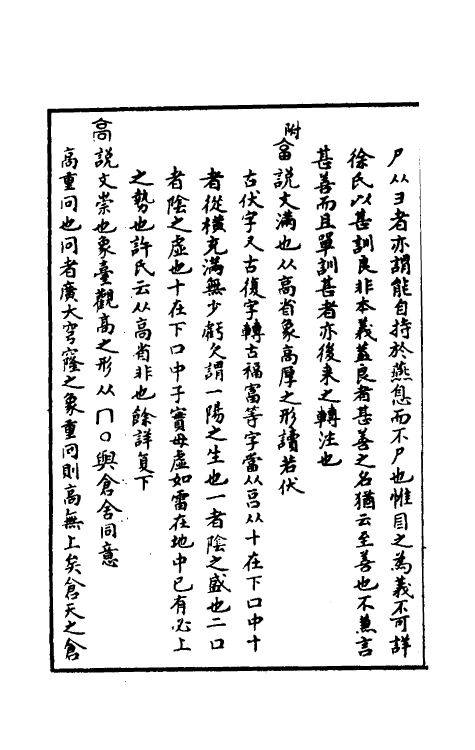 尸从彐者亦謂能自持於燕息而不尸也惟目之為義不可詳
徐氏以甚訓良非本義葢良者甚善之名猶云至善也不兼言
甚善而且單訓甚者亦後来之轉注也
附畗說文满也从高省象高厚之形讀若伏
古伏字又古復字轉古福富等字當从㐭从十在下口中十
者從橫充滿無少虧欠謂一陽之生也一者陰之盛也二口
者陰之虚也十在下口中子實母虚如雷在地中已有必上
之勢也許氏云从高省非也餘詳負下
高說文崇也象臺觀高之形从冂口與倉舍同意
高重冋也冋者廣大穹窿之象重冋則高無上矣倉天之倉